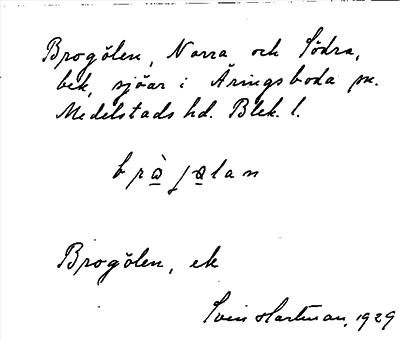 Brogölen, Norra och Södra,
bek, sjöar i Äringsboda sn.
Medelstads hd. Blek. l.
brò̲ jø̲lan
Brogölen, ek
Sven Hartman, 1929